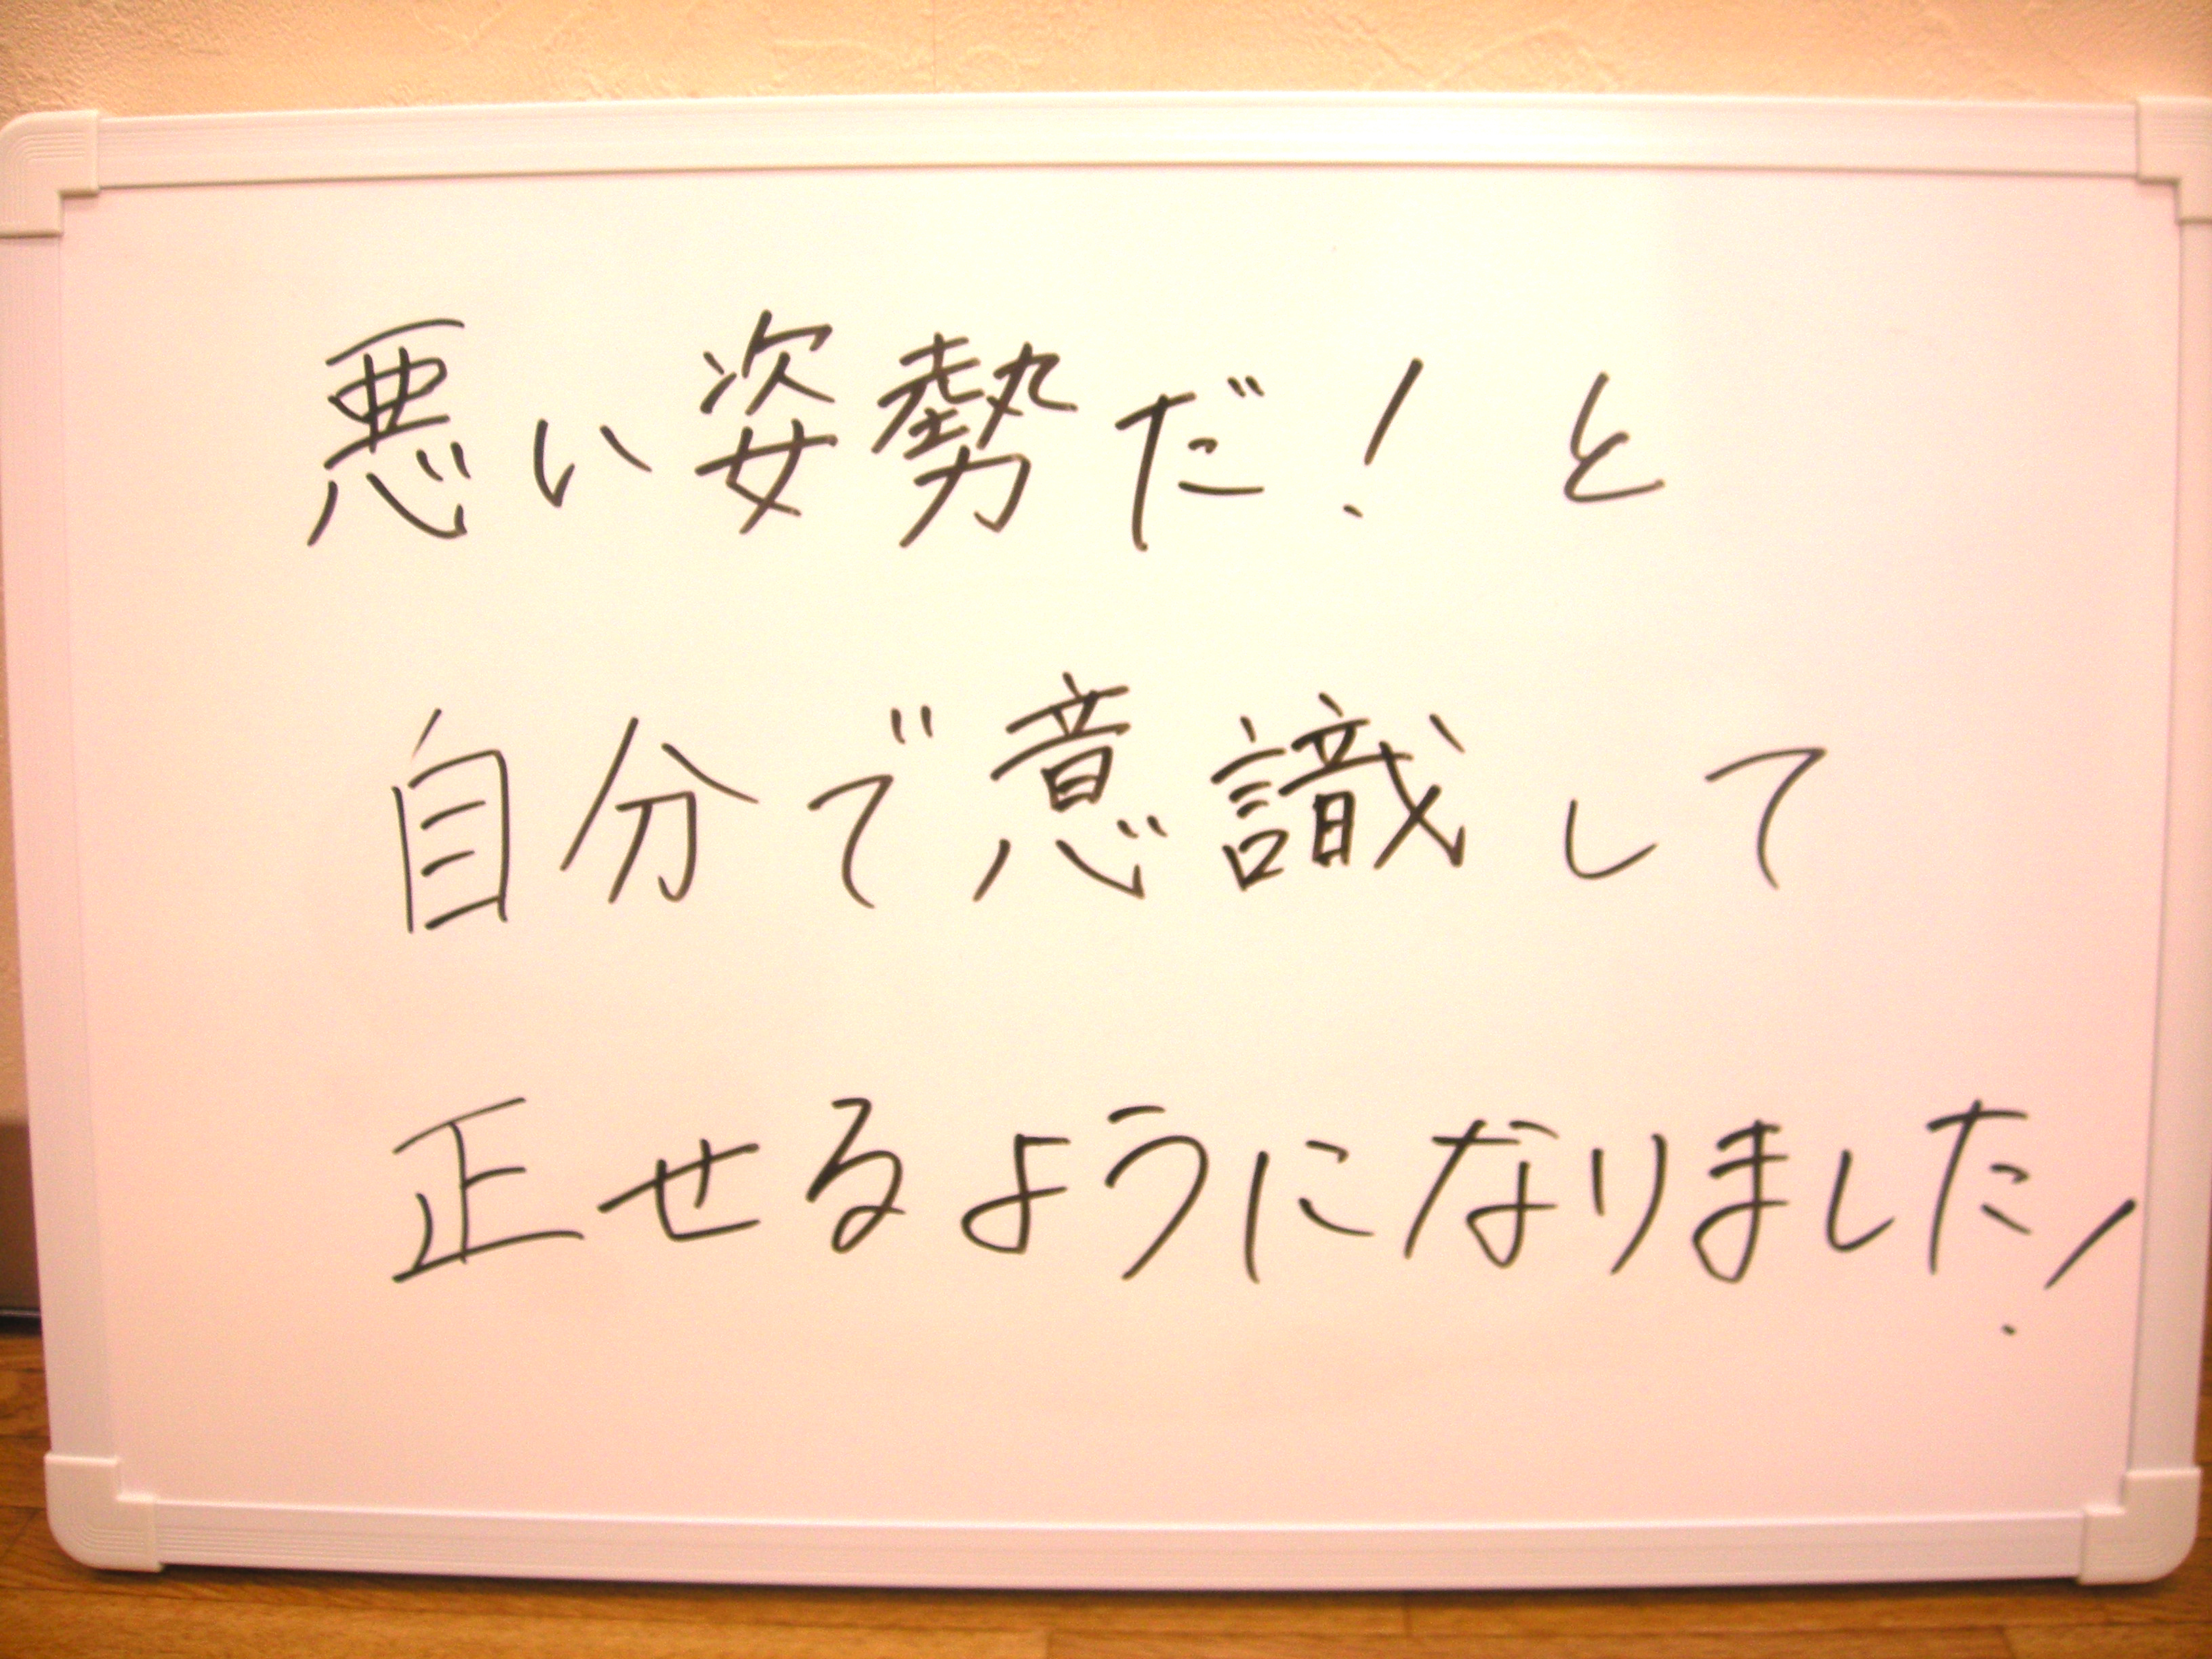 悪い姿勢だ！と
自分で意識して
正せるようになりました！